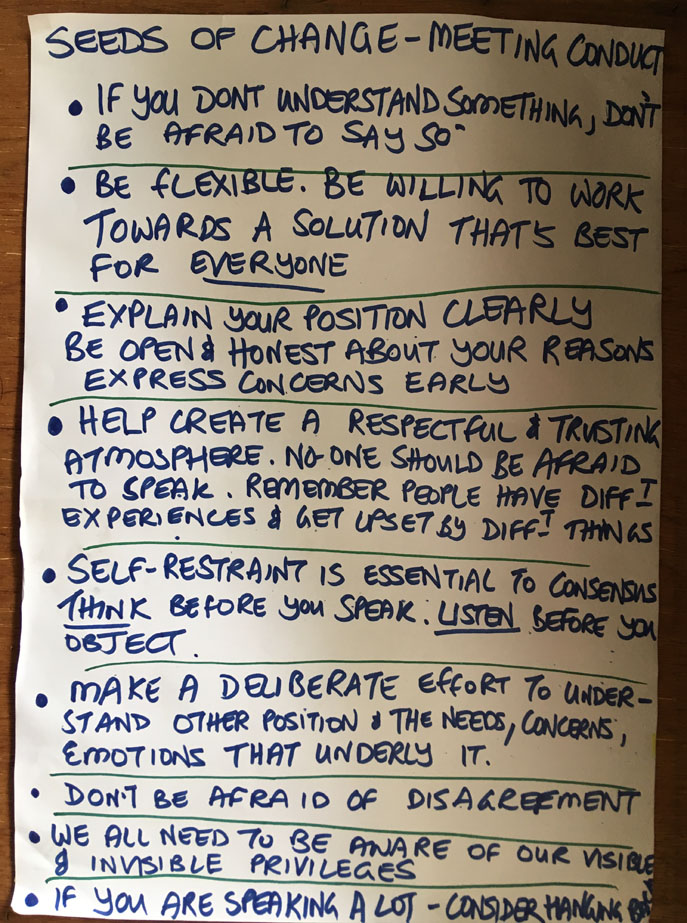 SEEDS OF CHANGE - MEETING CONDUCT
• IF YOU DONT UNDERSTAND SOMETHING, DON'T
BE AFRAID TO SAY SO
• BE FLEXIBLE. BE WILLING TO WORK
TOWARDS A SOLUTION THAT'S BEST
FOR EVERYONE
• EXPLAIN YOUR POSITION CLEARLY
BE OPEN & HONEST ABOUT YOUR REASONS
EXPRESS CONCERNS EARLY
• HELP CREATE A RESPECTFUL & TRUSTING
ATMOSPHERE. NO-ONE SHOULD BE AFRAID
TO SPEAK. REMEMBER PEOPLE HAVE DIFF-T
EXPERIENCES & GET UPSET BY DIFF-T THINGS
• SELF-RESTRAINT IS ESSENTIAL TO CONSENSUS
THINK BEFORE YOU SPEAK. LISTEN BEFORE YOU
OBJECT.
• MAKE A DELIBERATE EFFORT TO UNDER-
STAND OTHER POSITION & THE NEEDS, CONCERNS,
EMOTIONS THAT UNDERLY IT.
• DON'T BE AFRAID OF DISAGREEMENT
• WE ALL NEED TO BE AWARE OF OUR VISIBLE
& INVISIBLE PRIVILEGES
• IF YOU ARE SPEAKING A LOT - CONSIDER HANGING